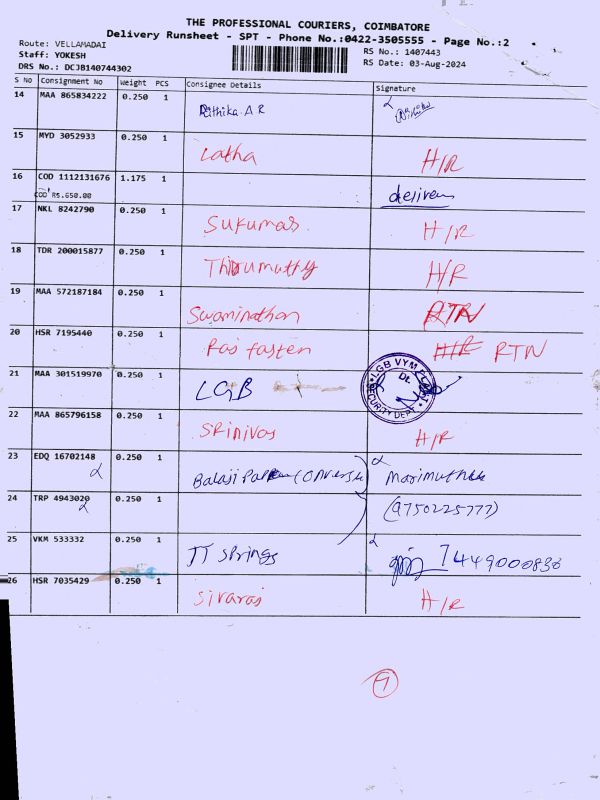 THE PROFESSIONAL COURIERS, COIMBATORE
Delivery Runsheet - SPT - Phone No.:0422-3505555 - Page No.:2
Route: VELLAMADAI
Staff: YOKESH
DRS No.: DCJB140744302
RS No.: 1407443
RS Date: 03-Aug-2024
S No Consignment No Weight PCS Consignee Details Signature
14 MAA 865834222 0.250 1 Rithika.A R
15 MYD 3052933 0.250 1 Latha H/R
16 COD 1112131676 1.175 1 deliver
COD RS.650.00
17 NKL 8242790 0.250 1 Sukumar. H/R
18 TDR 200015877 0.250 1 H/R
19 MAA 572187184 0.250 1 Swaminathan RTN
20 HSR 7195440 0.250 1 Raj fasten H/R RTN
21 MAA 301519970 0.250 1 LGB LGB VYM SECURITY DEPT
22 MAA 865796158 0.250 1 Srinivas H/R
23 EDQ 16702148 0.250 1 Balaji
24 TRP 4943020 0.250 1 (9750225777)
25 VKM 533332 0.250 1 JT Springs 7449000836
26 HSR 7035429 0.250 1 Sivaraj H/R
9